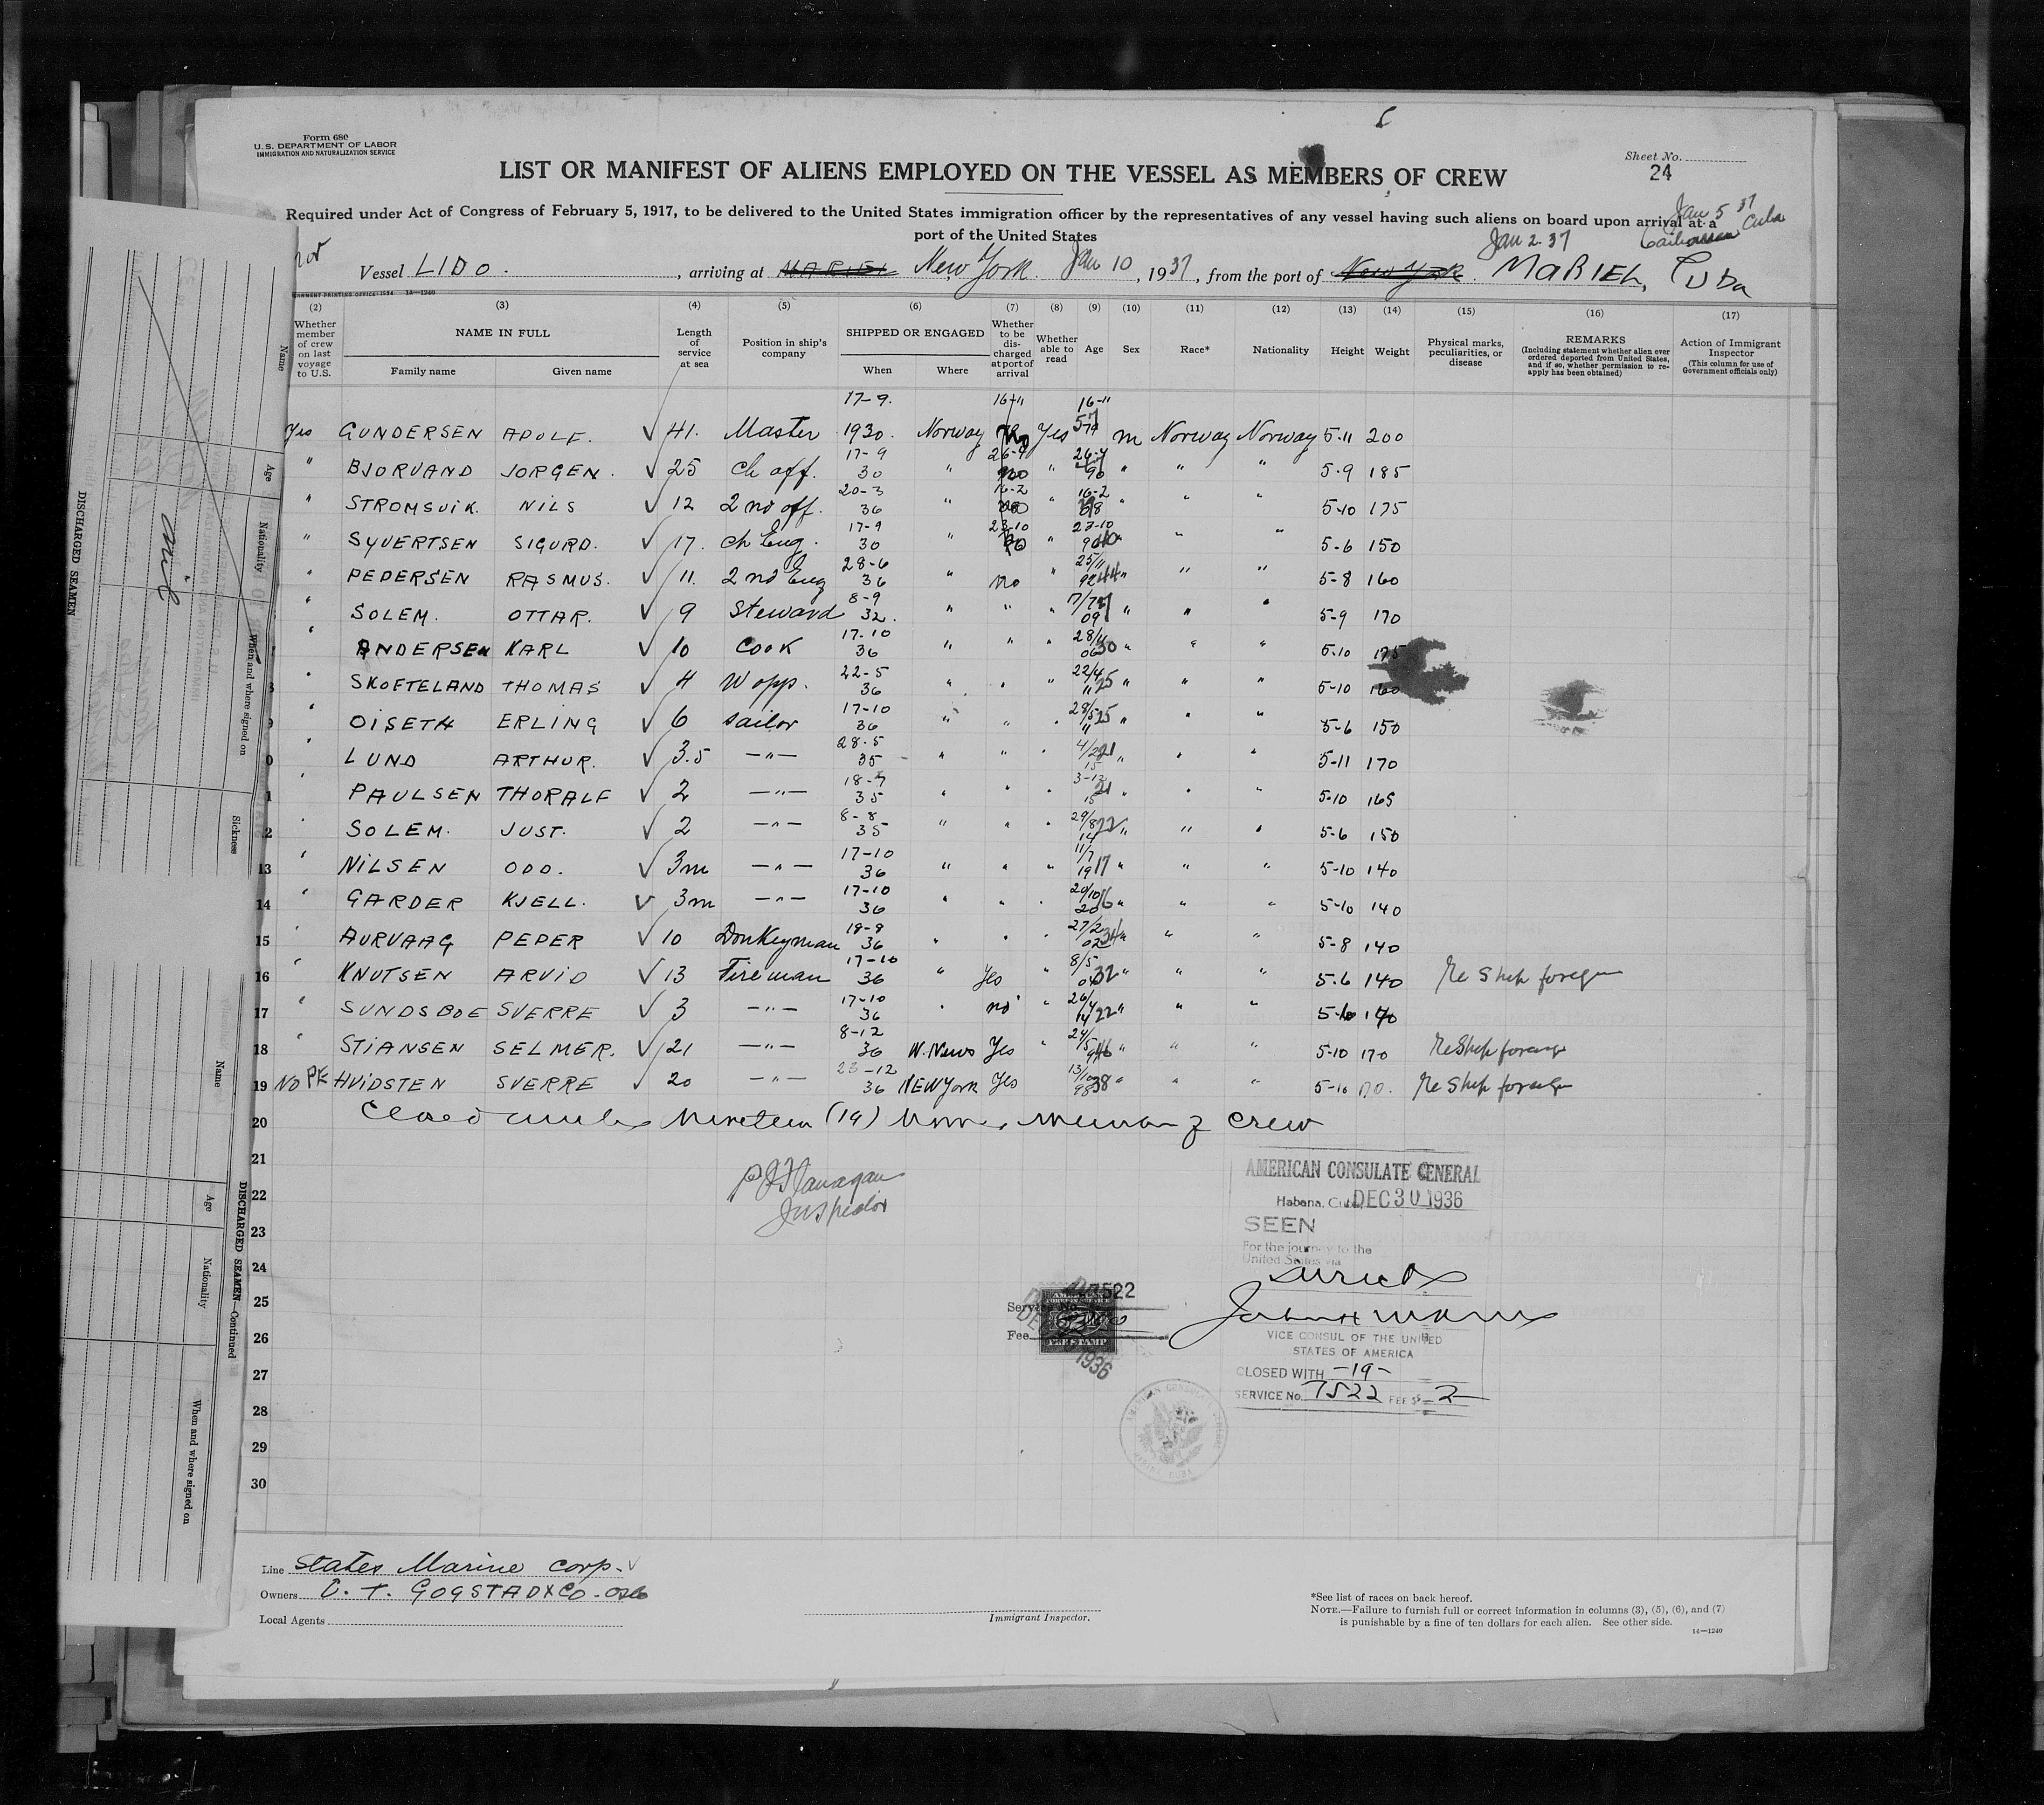 Form 680
U.S. DEPARTMENT OF LABOR
IMMIGRATION AND NATURALIZATION SERVICE
Sheet No.
24
LIST OR MANIFEST OF ALIENS EMPLOYED ON THE VESSEL AS MEMBERS OF CREW
Required under Act of Congress of February 5, 1917, to be delivered to the United States immigration officer by the representatives of any vessel having such aliens on board upon arrival at a
port of the United States
Jan 5 37
Cuba
Jan 2. 37
Vessel LIDO. , arriving at MARIEL New York Jan 10, 1937, from the port of New York. MARIEL, CUBA
(2) (3) (4) (5) (6) (7) (8) (9) (10) (11) (12) (13) (14) (15) (16) (17)
Whether member of crew on last voyage to U.S. NAME IN FULL Family name Given name Length of service at sea Position in ship's company SHIPPED OR ENGAGED When Where Whether to be discharged at port of arrival Whether able to read Age Sex Race* Nationality Height Weight Physical marks, peculiarities, or disease REMARKS (Including statement whether alien ever ordered deported from United States, and if so, whether permission to reapply has been obtained) Action of Immigrant Inspector (This column for use of Government officials only)
17-9. 16-11 16-11
Yes GUNDERSEN ADOLF. √ 41. Master 1930. Norway No Yes 57 m Norway Norway 5-11 200
" BJORVAND JORGEN. √ 25 ch off. 17-9 30 " 26-9 " 90 " " " 5-9 185
" STROMSVIK. NILS √ 12 2nd off. 20-3 36 " 16-2 " 16-2 " " " 5-10 175
" SYVERTSEN SIGURD. √ 17. ch Eng. 17-9 30 " 23-10 " 23-10 " " " 5-6 150
" PEDERSEN RASMUS. √ 11. 2nd Eng 28-6 36 " no " 25/11 92 44 " " " 5-8 160
" SOLEM. OTTAR. √ 9 Steward 8-9 32. " " " 17/7 09 " " " 5-9 170
" ANDERSEN KARL √ 10 Cook 17-10 36 " " " 06 30 " " " 5-10 175
" SKOFTELAND THOMAS √ 4 W opp. 22-5 36 " " " 22/4 11 25 " " " 5-10 160
" OISETH ERLING √ 6 sailor 17-10 36 " " " 28/5 11 25 " " " 5-6 150
" LUND ARTHUR. √ 3.5 —"— 28-5 35 " " " 4/2 15 21 " " " 5-11 170
" PAULSEN THORALF √ 2 —"— 18-7 35 " " " 3-12 15 21 " " " 5-10 165
" SOLEM. JUST. √ 2 —"— 8-8 35 " " " 29/8 14 22 " " " 5-6 150
13 " NILSEN ODD. √ 3m —"— 17-10 36 " " " 11/7 19 17 " " " 5-10 140
14 " GARDER KJELL. √ 3m —"— 17-10 36 " " " 20/10 20 16 " " " 5-10 140
15 " AURVAAG PEDER √ 10 Donkeyman 18-8 36 " " " 27/2 02 34 " " " 5-8 140
16 " KNUTSEN ARVID √ 13 Fireman 17-10 36 " Yes " 8/5 04 32 " " " 5-6 140 Re Ship foreign
17 " SUNDSBOE SVERRE √ 3 —"— 17-10 36 " no " 26/4 14 22 " " " 140
18 " STIANSEN SELMER. √ 21 —"— 8-12 36 N. News Yes " 24/5 46 " " " 5-10 170 Re Ship foreign
19 No PK HVIDSTEN SVERRE √ 20 —"— 23-12 36 NEW York Yes 13/10 98 38 " " " 5-10 170. Re Ship foreign
20 Closed with Nineteen (19) members of crew
21
22
23
24
25
26
27
28
29
30
P J Flanagan
Inspector
AMERICAN CONSULATE GENERAL
Habana, Cuba DEC 30 1936
SEEN
For the journey to the
United States via
direct
VICE CONSUL OF THE UNITED
STATES OF AMERICA
CLOSED WITH -19-
SERVICE No. 7522 FEE $ 2
Service No. 7522
Fee
FEE STAMP
1936
Line States Marine Corp. √
Owners O. T. GOGSTAD & CO - Oslo
Local Agents
Immigrant Inspector.
*See list of races on back hereof.
NOTE.—Failure to furnish full or correct information in columns (3), (5), (6), and (7)
is punishable by a fine of ten dollars for each alien. See other side.
14—1240
DISCHARGED SEAMEN
Name
Age
Nationality
When and where signed on
Sickness
DISCHARGED SEAMEN—Continued
Name
Age
Nationality
When and where signed on